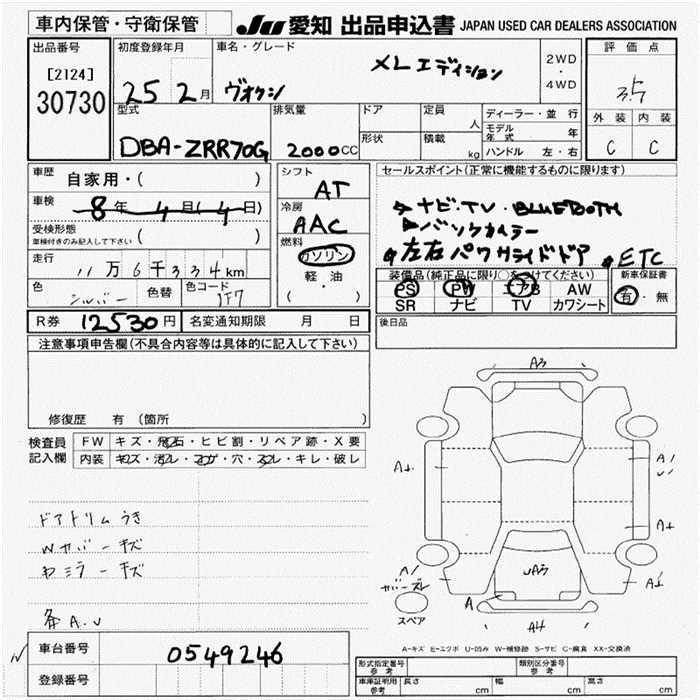 車内保管・守衛保管
JU 愛知 出品申込書 JAPAN USED CAR DEALERS ASSOCIATION
出品番号
[2124]
30730
初度登録年月
25 2月
車名・グレード
ヴォクシー XLエディション
2WD・4WD
評価点
3.5
外装 内装
C C
型式
DBA-ZRR70G
排気量
2000CC
ドア
形状
定員 人
積載 kg
ディーラー・並行
モデル年式 年
ハンドル 左・右
車歴
自家用・( )
車検
8年 4月(4日)
受検形態
車検付きのみ記入して下さい ( )
走行
11万6千334km
色
シルバー
色替
色コード
1F7
シフト
AT
冷房
AAC
燃料
ガソリン
軽・油
( ・ )
セールスポイント(正常に機能するものに限ります)
ナビ・TV・BLUETOOTH
バックカメラー
左右パワスライドドア ETC
装備品(純正品に限り○をつけてください)
PS PW エアB AW
SR ナビ TV カワシート
新車保証書
有・無
R券 12530円
名変通知期限 月 日
後日品
注意事項申告欄(不具合内容等は具体的に記入して下さい)
修復歴 有(箇所 )
検査員記入欄
FW キズ・飛石・ヒビ割・リペア跡・X要
内装 キズ・汚レ・コゲ・穴・スレ・キレ・破レ
ドアトリムうき
Wカバーキズ
Rミラーキズ
A3
A1
A1
A1
A1
A3
A
A4
スペア
A-キズ E-エクボ U-凹み W-補修跡 S-サビ C-腐食 XX-交換済
車台番号
0549246
登録番号
形式指定番号 参考
類別区分番号 参考
車庫証明用 参考
長さ cm
幅 cm
高さ cm